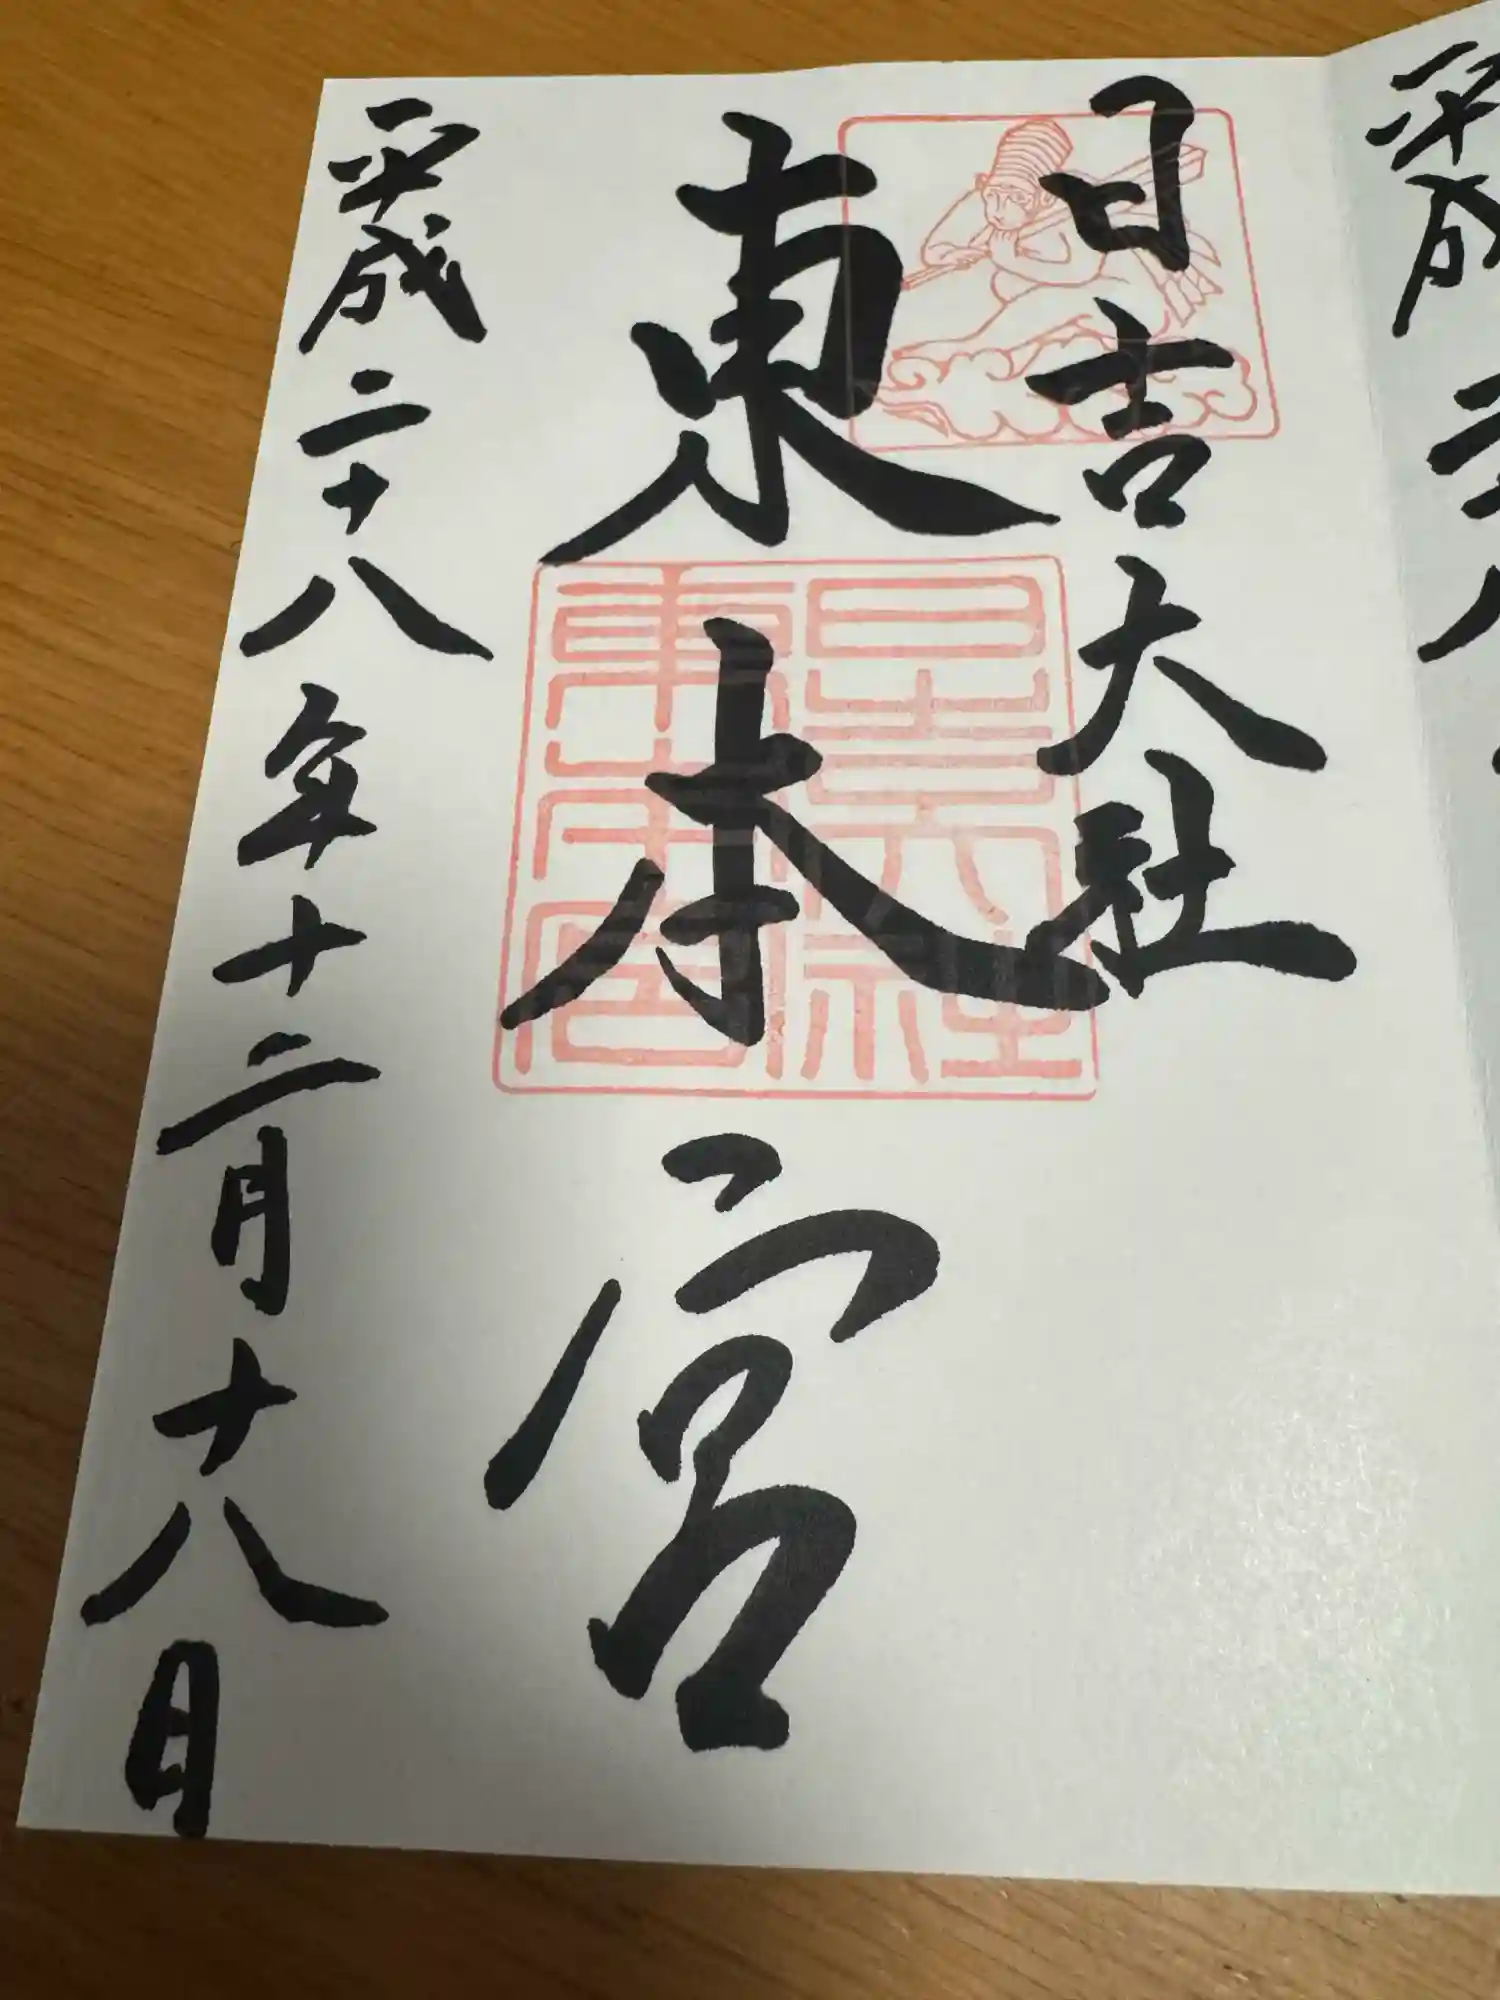 日吉大社
東本宮
日吉大社
東本宮
平成二十八年十二月十八日
平成二十八